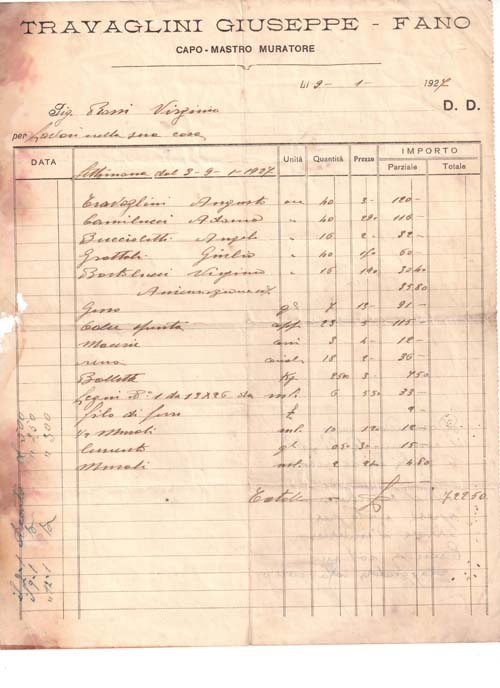 TRAVAGLINI GIUSEPPE - FANO
CAPO-MASTRO MURATORE
li 9 - 1 - 1927
Sig. Rossi Virginio D. D.
per Lavori nella sua casa
DATA Unità Quantità Prezzo IMPORTO
Parziale Totale
Settimana dal 3 - 9 - 1 - 1927
Travaglini Augusto ore 40 3 - 120 -
Camilucci Adamo " 40 290 116 -
Buccioletti Angelo " 16 2 - 32 -
Grottoli Giulio " 40 1,50 60 -
Bartolucci Virginio " 16 190 30 40
35.80
Gesso ql 7 13 - 91 -
Calce spenta 23 5 - 115 -
3 4 - 12 -
18 2 - 36 -
Bollette Kg 250 3 - 7.50
Legni N° 1 da 13x26 ml. 6 5.50 33 -
filo di ferro
1/2 Murali ml. 10 1.20 12 -
Cemento ql 0.50 30 - 15 -
Murali ml. 2 4.80
722 50